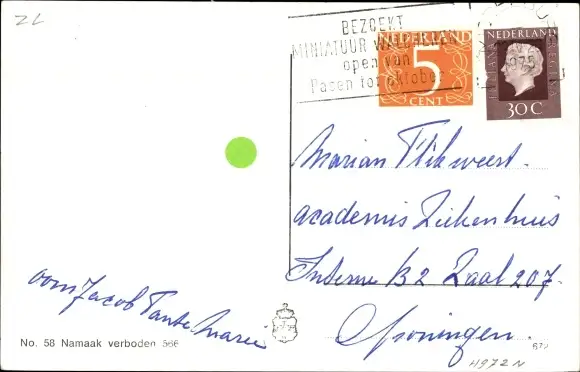 ZL
BEZOEKT
MINIATUUR WALCHEREN
open van
Pasen tot oktober
1975
NEDERLAND
5
CENT
NEDERLAND
JULIANA REGINA
30 C
Marian Flikweert.
academis Ziekenhuis
Interne B2 Zaal 207.
Groningen.
oom Jacob Tante Marie
No. 58 Namaak verboden 566
H972N